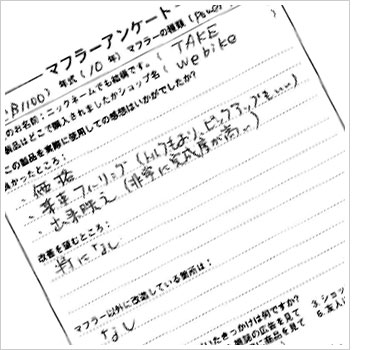 マフラーアンケート
B1100) 年式(10年) マフラーの種類(Power
のお名前:ニックネームでも結構です。( TAKE )
製品はどこで購入されましたかショップ名( webike
この製品を実際に使用しての感想はいかがでしたか?
良かったところ:
・価格
・乗車フィーリング(トルクもあり、ピックアップもいい)
・出来映え(非常に完成度が高い)
改善を望むところ:
特になし
マフラー以外に改造している箇所は:
なし
いたきっかけは何ですか? 3.ショッ
雑誌の広告を見て 6.友人に
に商品を見て